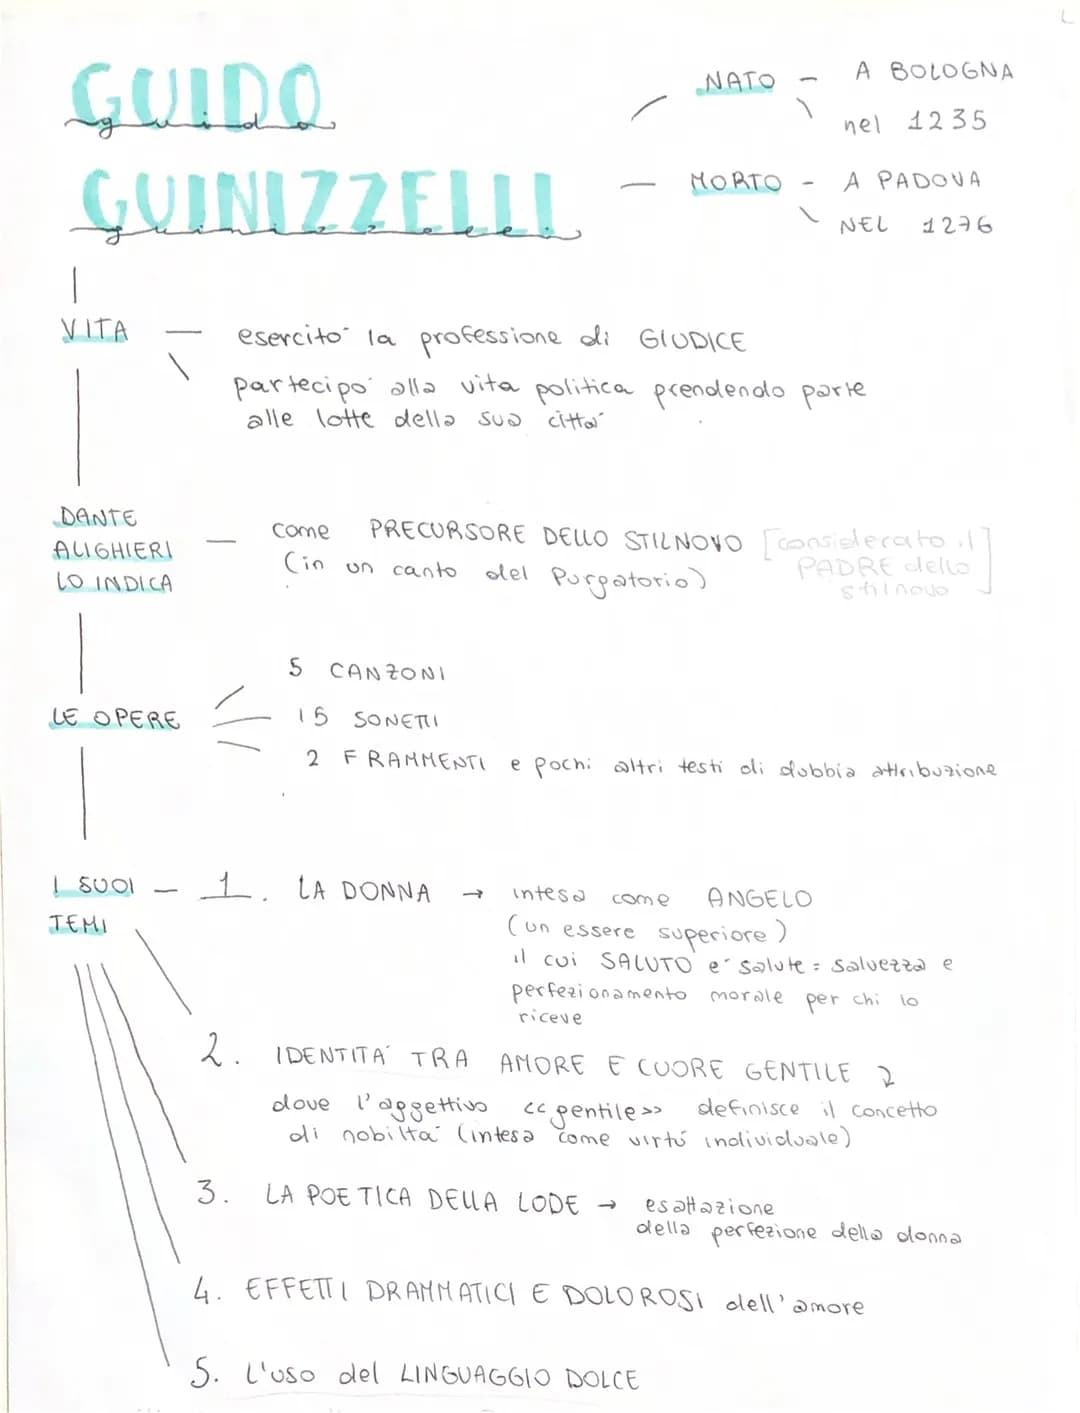 GUIDO
guido
GUINIZZELLI
guinizzelli
NATO - A BOLOGNA
nel 1235
MORTO - A PADOVA
NEL 1276
VITA — esercitò la professione di GIUDICE
partecipò alla vita politica prendendo parte
alle lotte della sua città
DANTE
ALIGHIERI
LO INDICA
come PRECURSORE DELLO STILNOVO [considerato il
PADRE dello
stilnovo]
(in un canto del Purgatorio)
LE OPERE
5 CANZONI
15 SONETTI
2 FRAMMENTI e pochi altri testi di dubbia attribuzione
I SUOI
TEMI
1. LA DONNA → intesa come ANGELO
(un essere superiore)
il cui SALUTO è salute = salvezza e
perfezionamento morale per chi lo
riceve
2. IDENTITÀ TRA AMORE E CUORE GENTILE
dove l'aggettivo <<gentile>> definisce il concetto
di nobiltà (intesa come virtù individuale)
3. LA POETICA DELLA LODE → esaltazione
della perfezione della donna
4. EFFETTI DRAMMATICI E DOLOROSI dell'amore
5. L'uso del LINGUAGGIO DOLCE